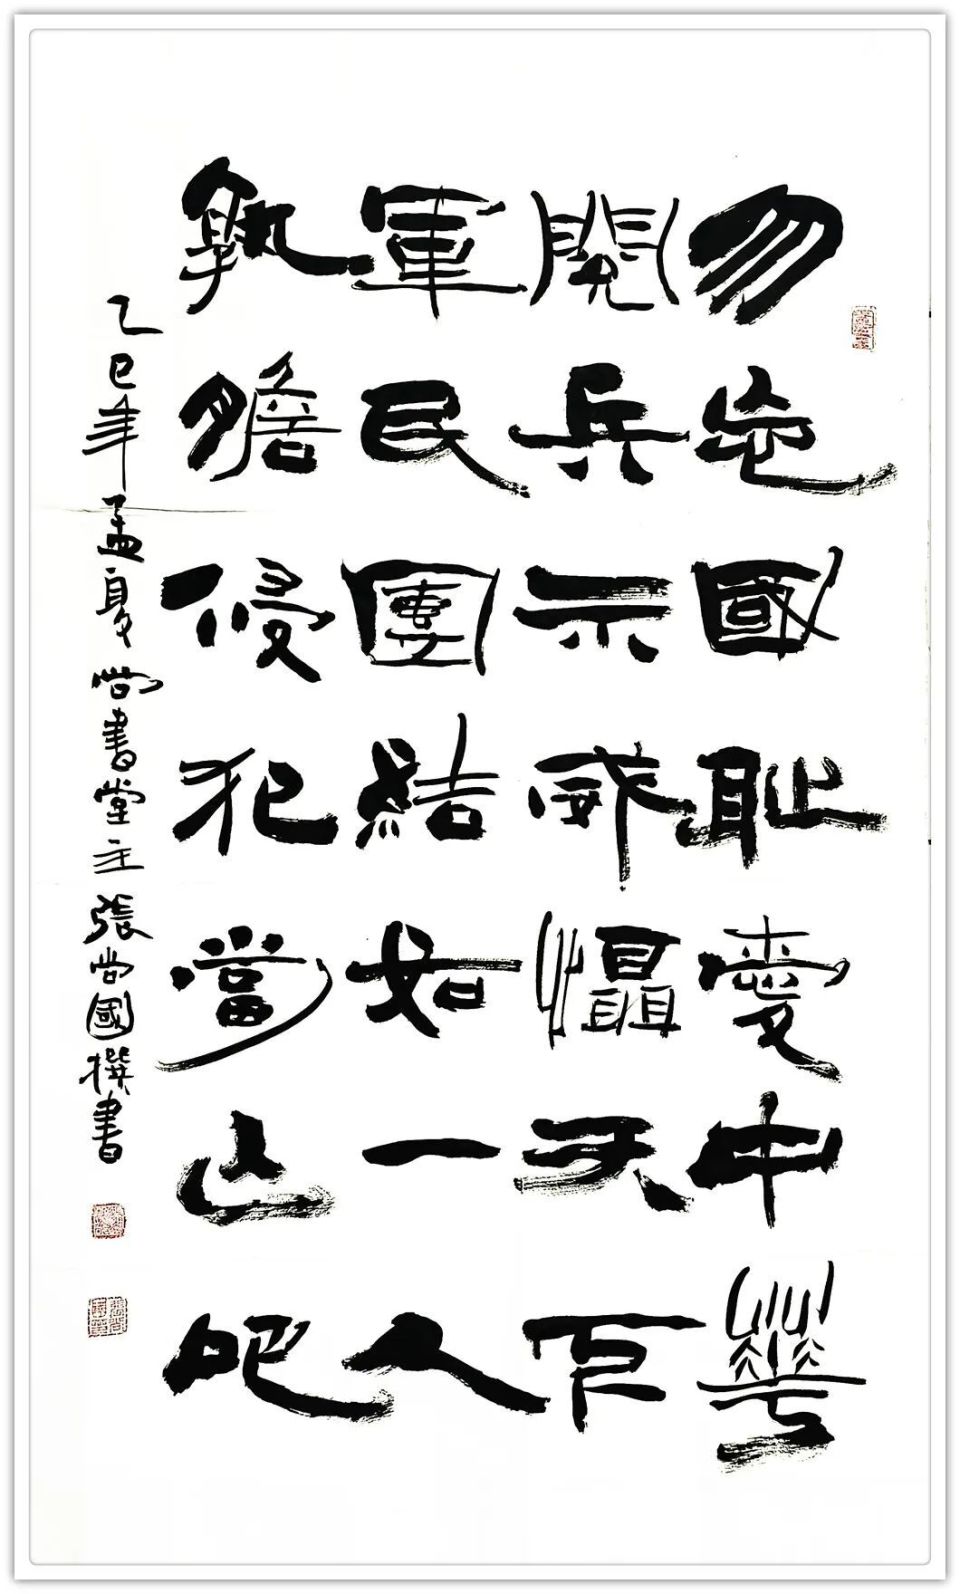 勿忘國耻愛中華
閲兵示威懾天下
軍民團結如一人
孰膽侵犯當亡吧
乙巳年孟夏尚書堂主張尚國撰書